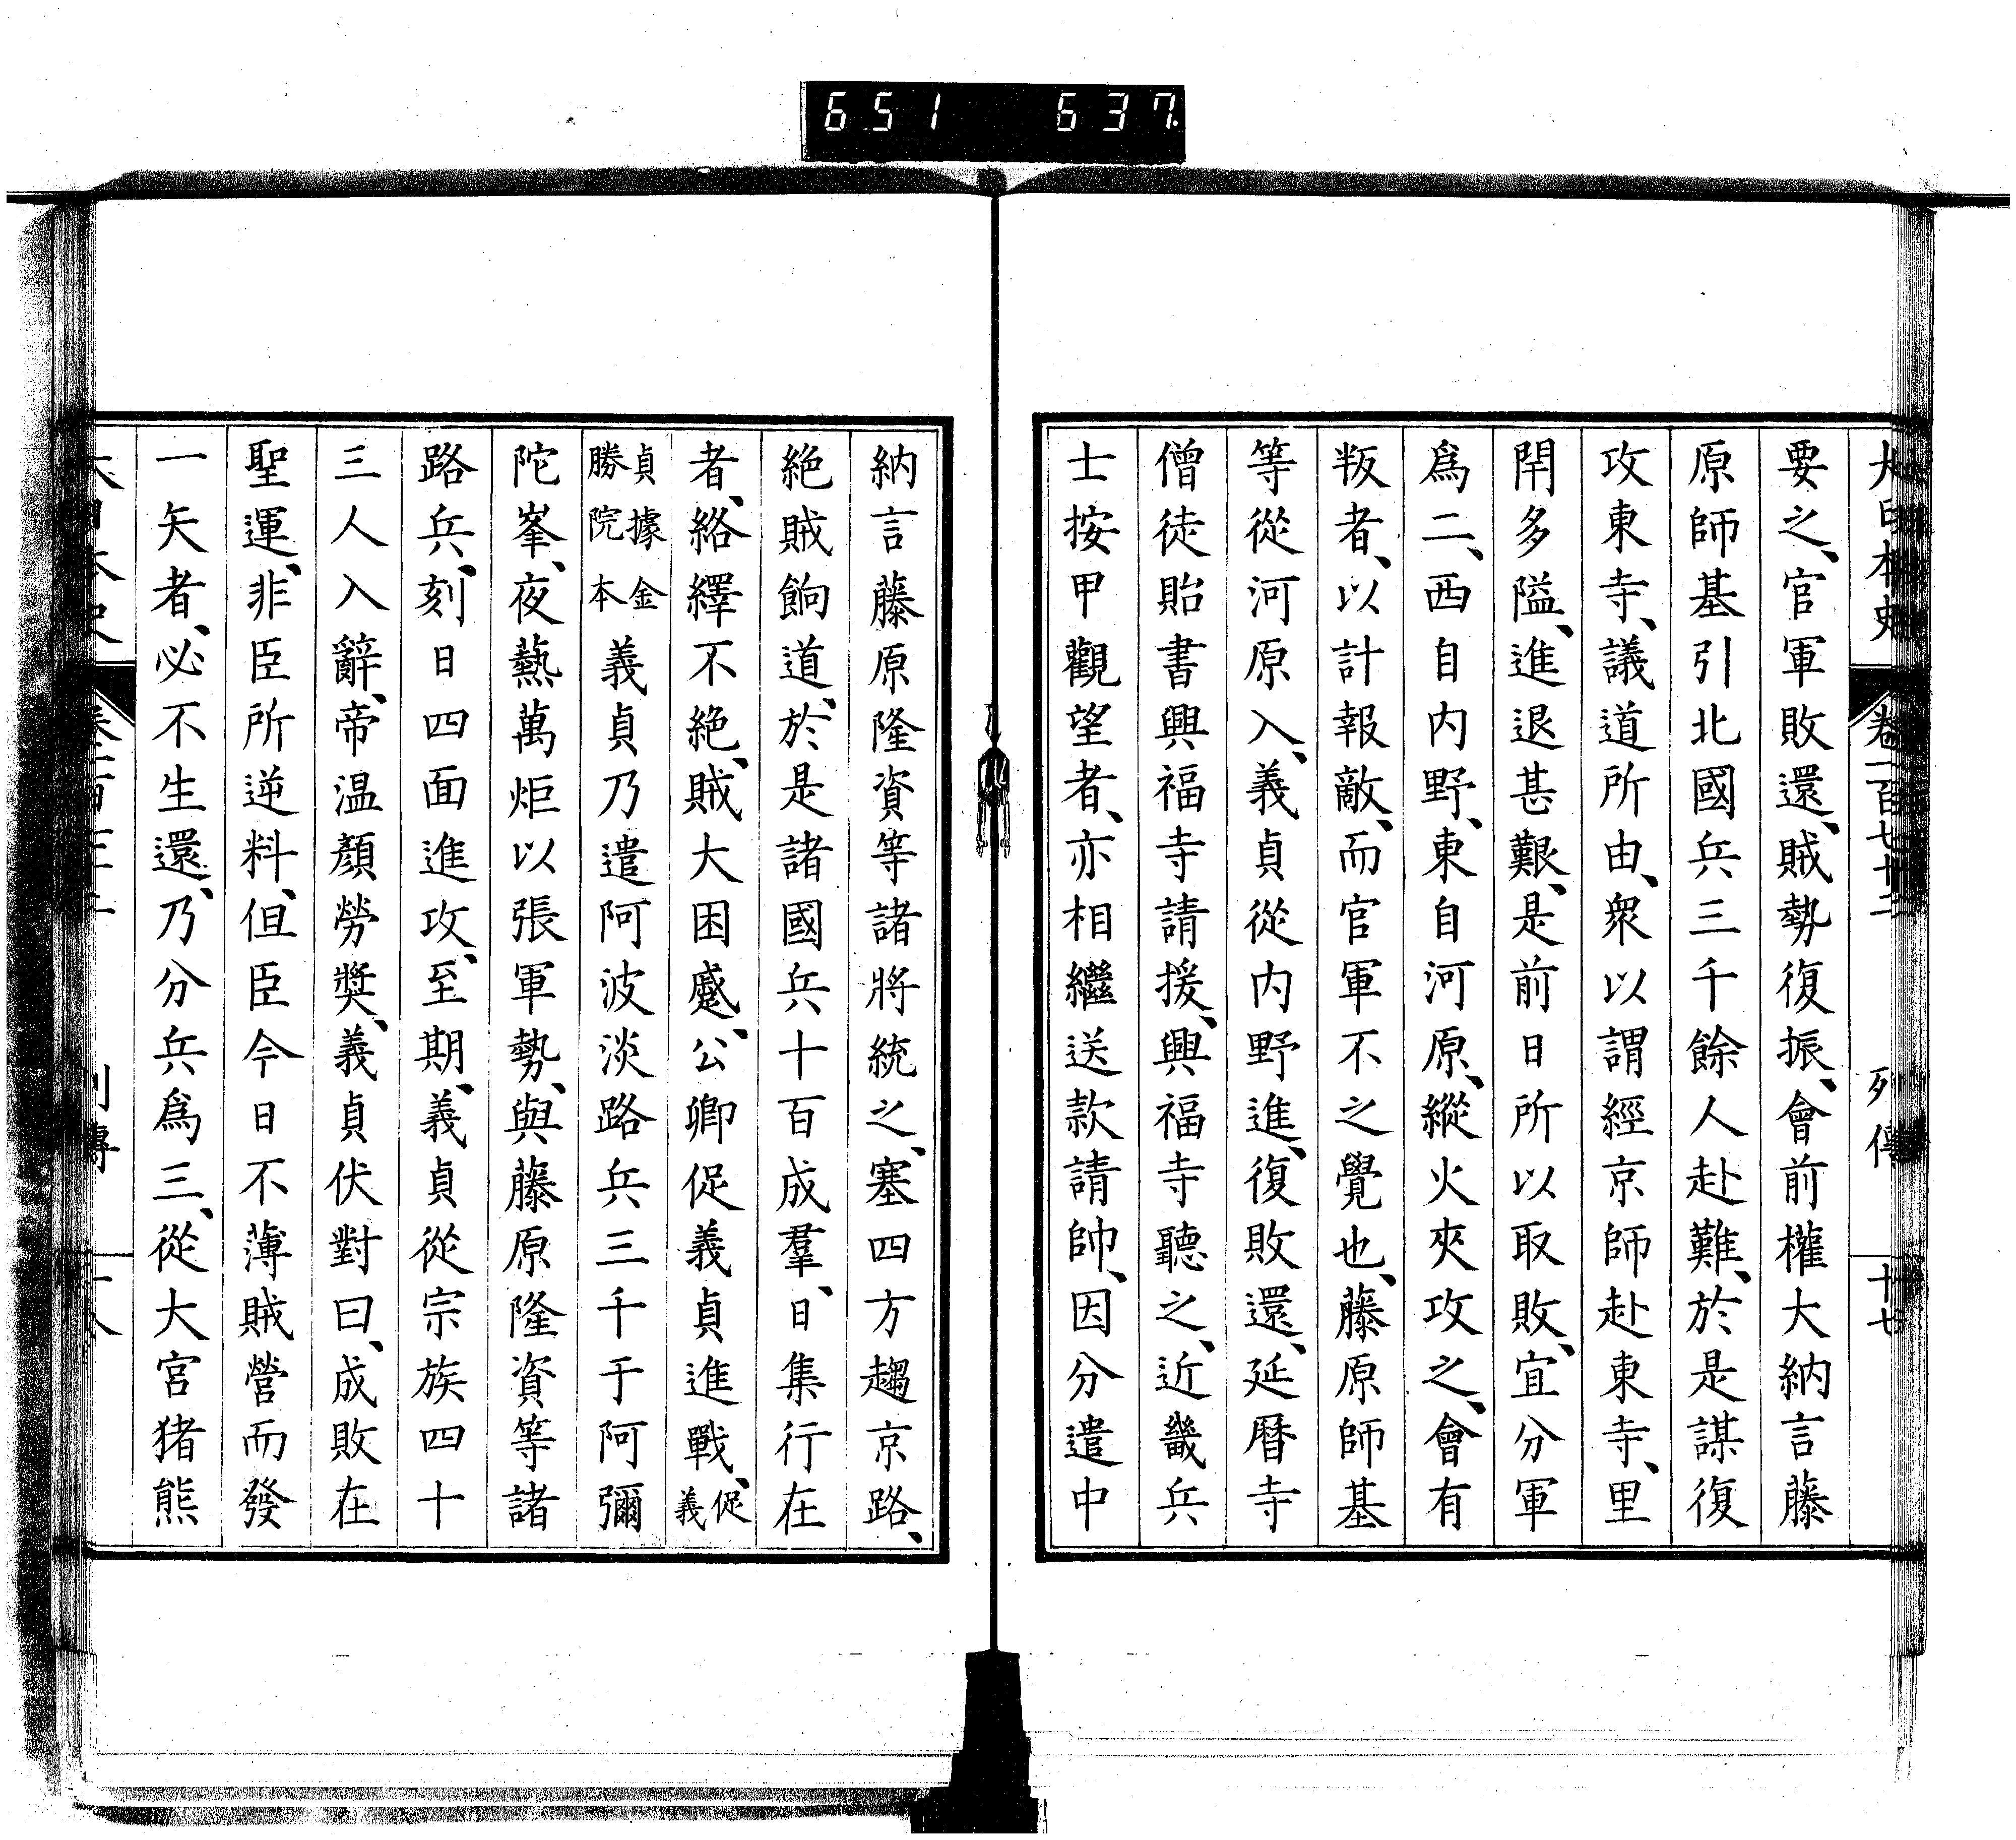 651 637
大日本史 卷一百七十二 列傳 十七
要之、官軍敗還、賊勢復振、會前權大納言藤
原師基引北國兵三千餘人赴難、於是謀復
攻東寺、議道所由、衆以謂經京師赴東寺、里
閈多隘、進退甚艱、是前日所以取敗、宜分軍
爲二、西自内野、東自河原、縱火夾攻之、會有
叛者、以計報敵、而官軍不之覺也、藤原師基
等從河原入、義貞從内野進、復敗還、延曆寺
僧徒貽書興福寺請援、興福寺聽之、近畿兵
士按甲觀望者、亦相繼送款請帥、因分遣中
納言藤原隆資等諸將統之、塞四方趨京路、
絶賊餉道、於是諸國兵十百成羣、日集行在
者、絡繹不絶、賊大困蹙、公卿促義貞進戰、促義
貞據金勝院本義貞乃遣阿波淡路兵三千于阿彌
陀峯、夜爇萬炬以張軍勢、與藤原隆資等諸
路兵、刻日四面進攻、至期、義貞從宗族四十
三人入辭、帝温顏勞奬、義貞伏對曰、成敗在
聖運、非臣所逆料、但臣今日不薄賊營而發
一矢者、必不生還、乃分兵爲三、從大宮猪熊